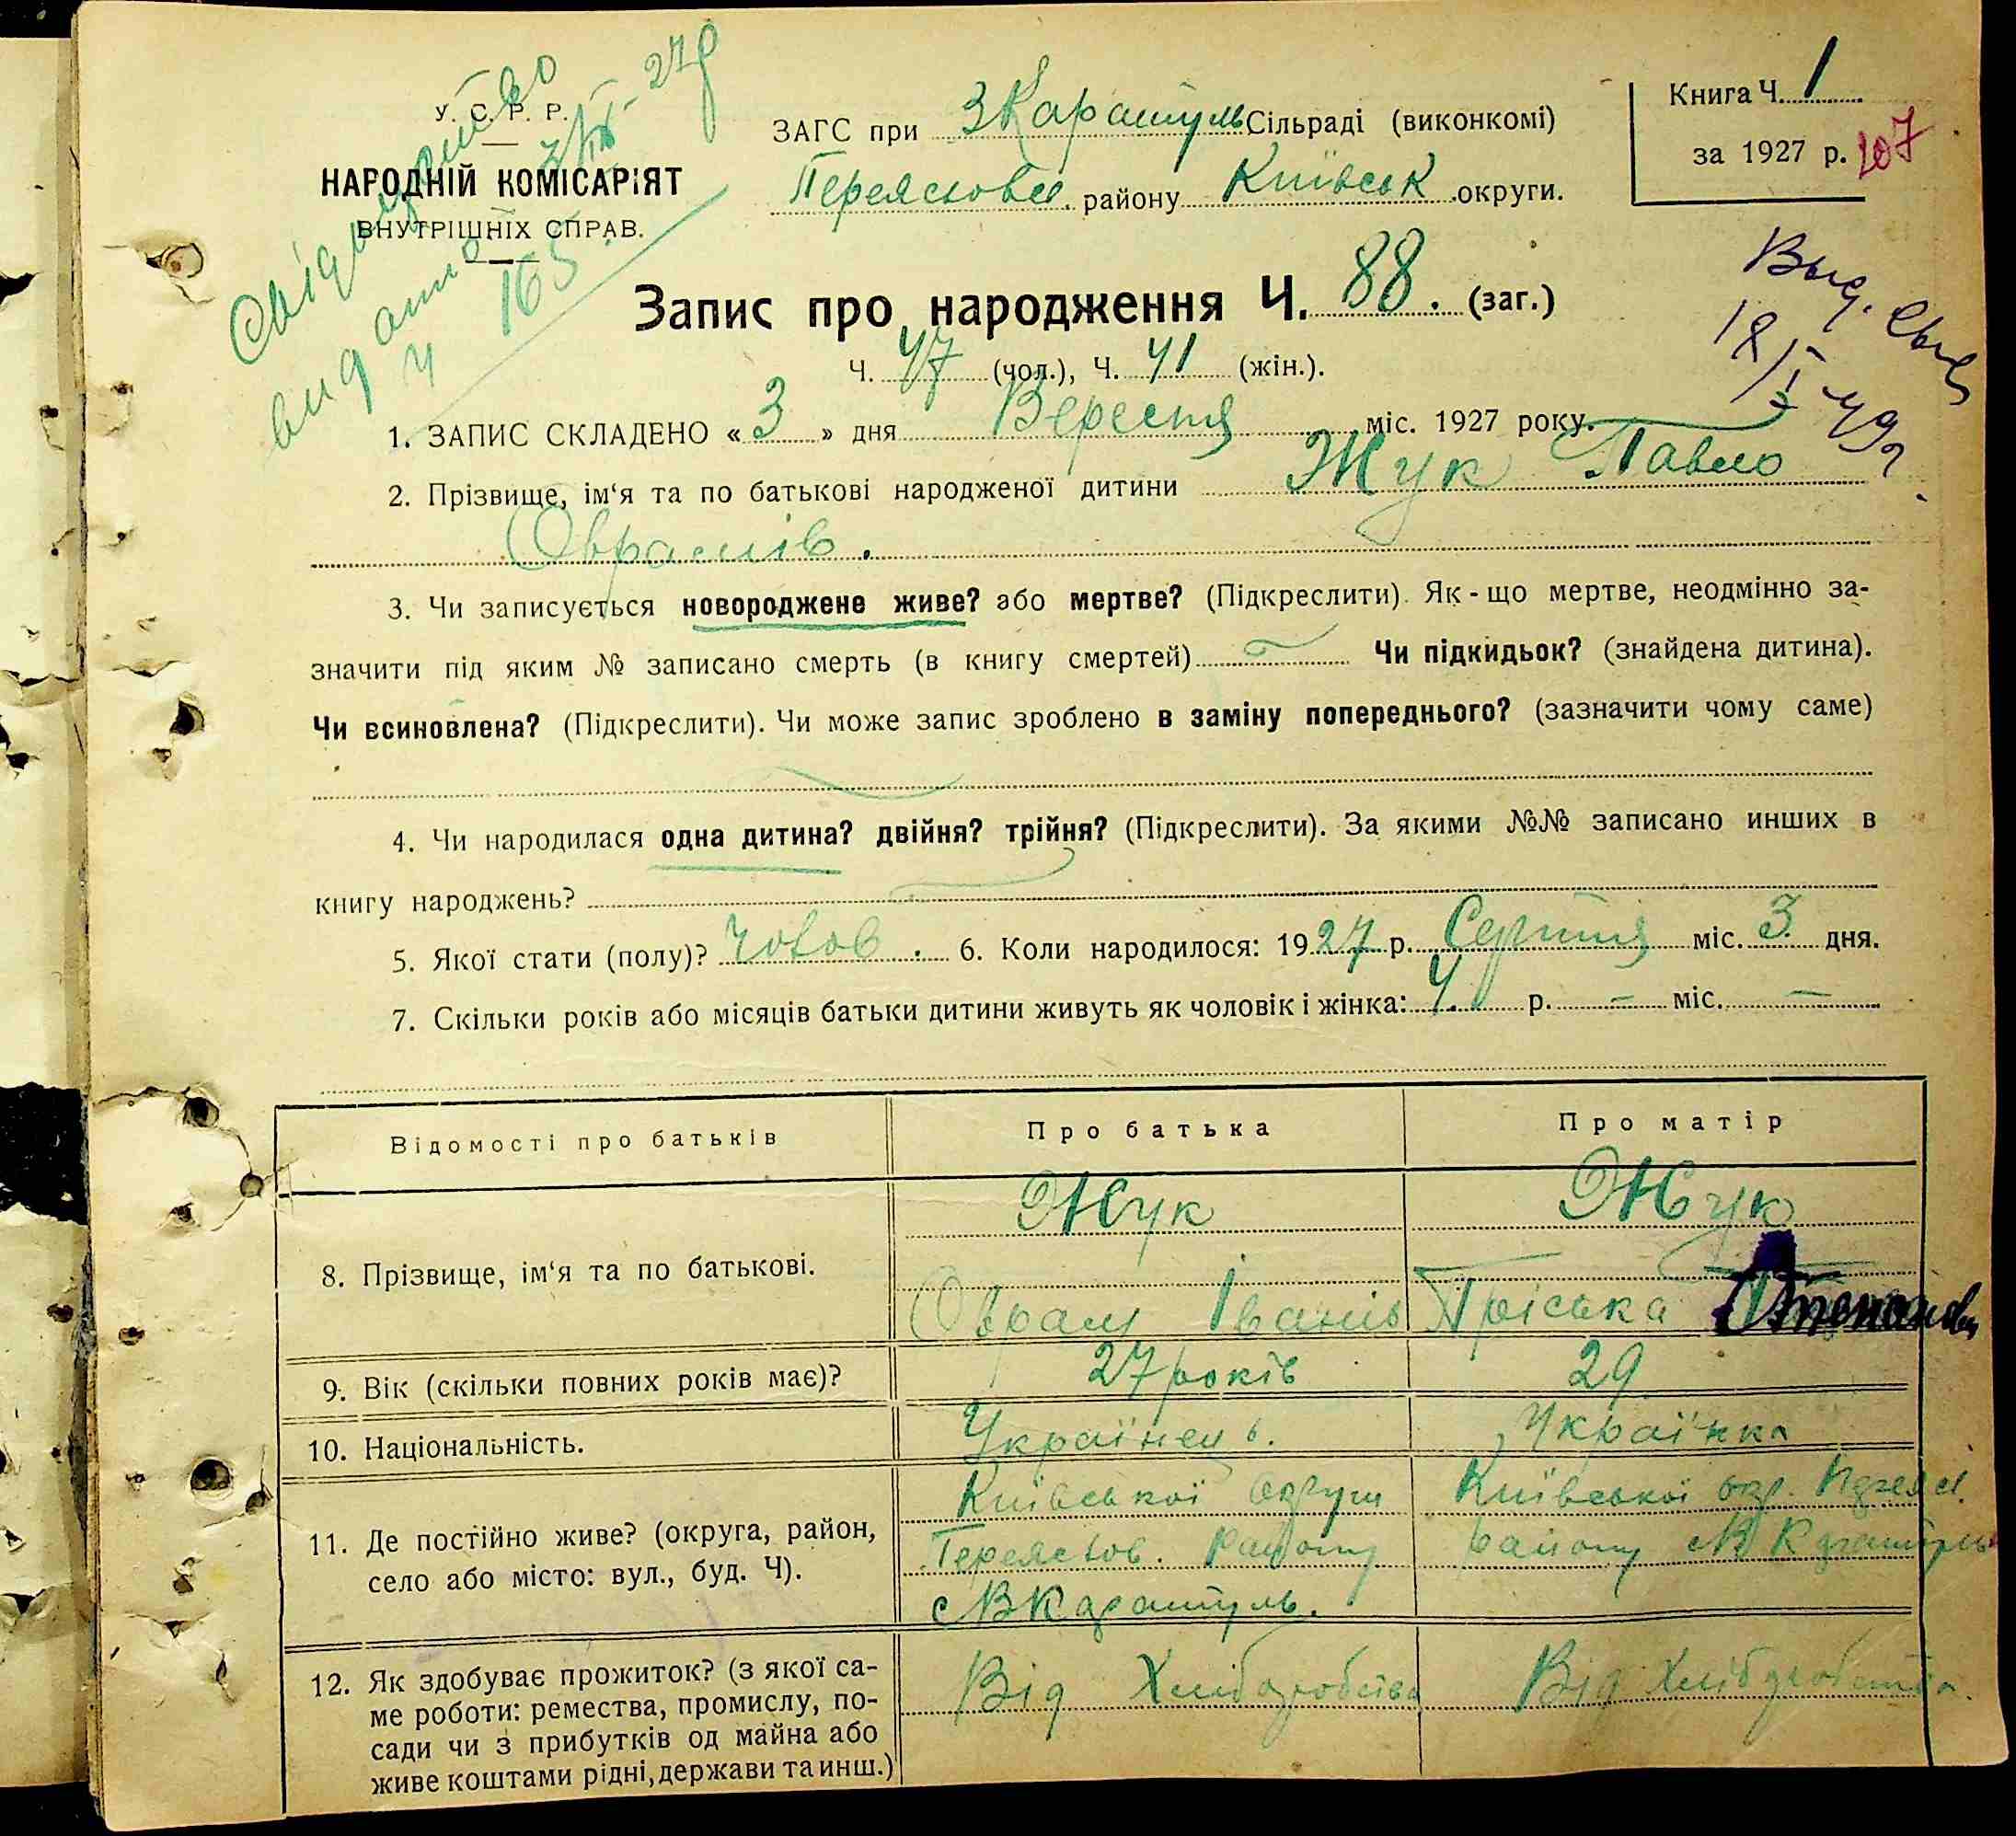 У. С. Р. Р.
НАРОДНІЙ КОМІСАРІЯТ
ВНУТРІШНІХ СПРАВ.
Свідоцтво
видано
Ч 165
ЗАГС при ЗКаратуль Сільраді (виконкомі)
Переяслов. району Київськ округи.
Книга Ч. 1
за 1927 р. 107
Выд.
18/I-49г.
Запис про народження Ч. 88. (заг.)
Ч. 47 (чол.), Ч. 41 (жін.).
1. ЗАПИС СКЛАДЕНО « 3 » дня Вересня міс. 1927 року.
2. Прізвище, ім‘я та по батькові народженої дитини Жук Павло
Оврамів.
3. Чи записується новороджене живе? або мертве? (Підкреслити). Як-що мертве, неодмінно за-
значити під яким № записано смерть (в книгу смертей) Чи підкидьок? (знайдена дитина).
Чи всиновлена? (Підкреслити). Чи може запис зроблено в заміну попереднього? (зазначити чому саме)
4. Чи народилася одна дитина? двійня? трійня? (Підкреслити). За якими №№ записано инших в
книгу народжень?
5. Якої стати (полу)? Чолов. 6. Коли народилося: 1927 р. Серпня міс. 3 дня.
7. Скільки років або місяців батьки дитини живуть як чоловік і жінка: 4. р. – міс. –
Відомості про батьків Про батька Про матір
8. Прізвище, ім‘я та по батькові.
Жук Жук
Оврам Іванів Пріська Степанівн
9. Вік (скільки повних років має)? 27 років 29
10. Національність. Українець. Українка
11. Де постійно живе? (округа, район,
село або місто: вул., буд. Ч).
Київської округи Київської окр. Переясл.
Переяслов. Району району с В Каратуль
с В Каратуль.
12. Як здобуває прожиток? (з якої са-
ме роботи: ремества, промислу, по-
сади чи з прибутків од майна або
живе коштами рідні, держави та инш.)
Від Хліборобства Від Хліборобства.